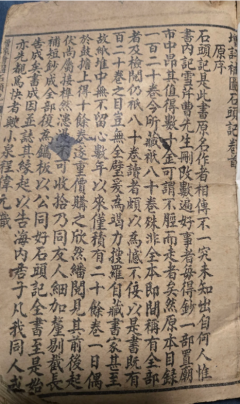 增評補圖石頭記卷首
原序
石頭記是此書原名作者相傳不一究未知出自何人惟
書內記雪芹曹先生刪改數過好事者每得鈔一部置廟
市中昂其值得數十金可謂不脛而走者矣然原本目錄
一百二十卷今所藏祗八十卷殊非全本即間有稱全部
者及檢閱仍祗八十卷讀者頗以為憾不佞以是書既有
百二十卷之目豈無全璧爰為竭力搜羅自藏書家甚至
故紙堆中無不留心數年以來僅積有二十餘卷一日偶
於鼓擔上得十餘卷遂重價購之欣然繙閱見其前後起
伏尚屬接榫然漶可收拾乃同友人細加釐剔截長
補短鈔成全部復為鐫板以公同好石頭記全書至是始
告成矣書成因並誌其緣起以告海內君子凡我同人或
亦先覩為快者歟小泉程偉元識